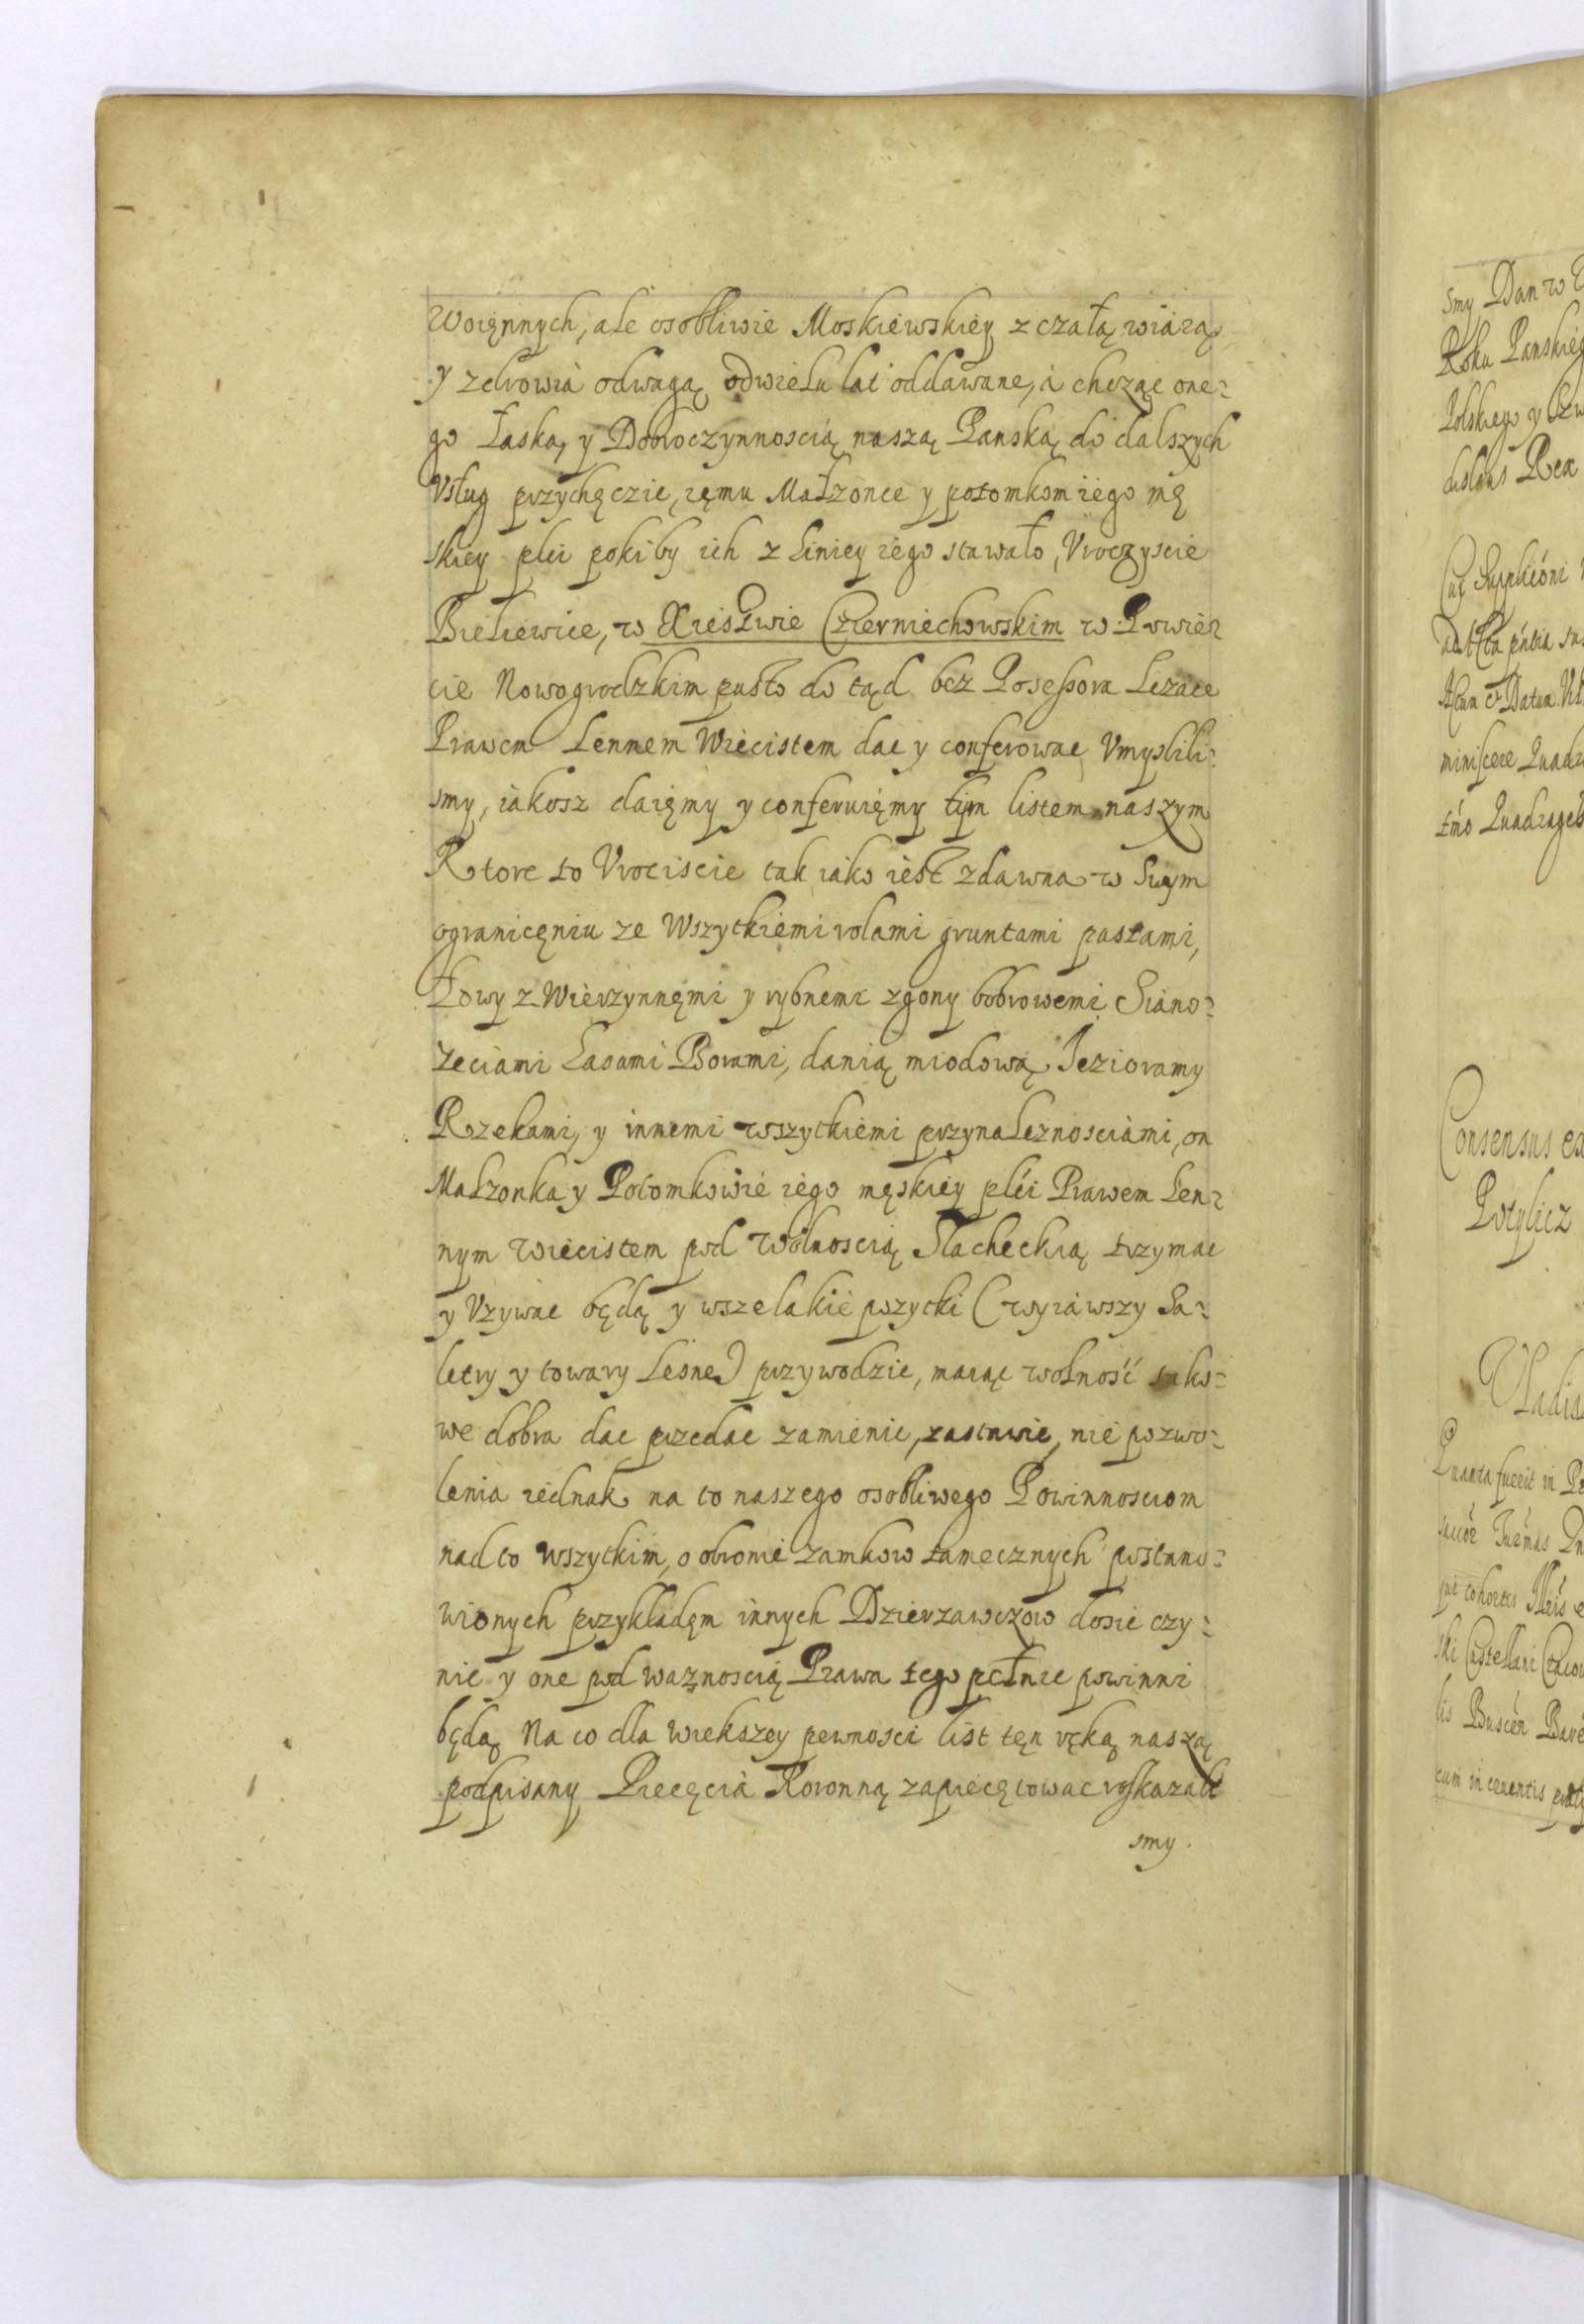 Woięnnych, ale osobliwie Moskiewskiey z czałą wiarą
y zdrowia odwagą odwielu lat oddawane, á chcząc one⸗
go Łaską, y Dobroczynnoscią naszą Panską do dalszych
Vsług przychęczic, ięmu Małzonce y potomkom iego mę
skiey płci pokiby ich z Liniey iego stawało, Vroczyscie
Bieliewice, w Xięstwie Czierniechowskim w Powiez
cie Nowogrodzkim pusto do tąd bez Possessora Lezące
Prawem Lennem Wiecistem dac y conferowac Vmyslili⸗
smy, iakosz daięmy y conferuięmy tym listem naszym
Ktore to Vrociscie tak iako iest zdawna w Swym
ogranicęniu ze Wszytkiemi rolami gruntami pastami,
Łowy z Wierzynnęmi y rybnemi zgony bobrowemi Siano⸗
zeciami Lasami Borami, danią miodową Jezioramy
Rzekami, y innemi wszytkiemi przynaleznosciami, on
Małzonka y Potomkowie iego męskiey płci Prawem Len⸗
nym wiecistem pod wolnoscią Slachecką trzymac
y Vzywac będą y wszelakie pozycki (wyiawszy Sa⸗
letry y towary Lesne) przywodzic, maiąc wolność tako⸗
we dobra dac przedac zamienic, zastawic, nie pozwo⸗
lenia iednak na to naszego osobliwego Powinnosciom
nad to wszytkim, o obronie zamkow tamecznych postano⸗
wionych przykładęm innych Dzierzawczow dosic czy⸗
nic y one pod waznoscią Prawa tego pełnic powinni
będą Na co dla wiekszey pewnosci list tęn ręką naszą
podpisany Piecęcia Koronną zapiecętowac roskazali
smy.
smy Dan w
Roku Panskieg
Polskiego y Szw
dislaus Rex
Acum & Datum
Consensus
Potylicz
Vladis
Quanta fuerit in